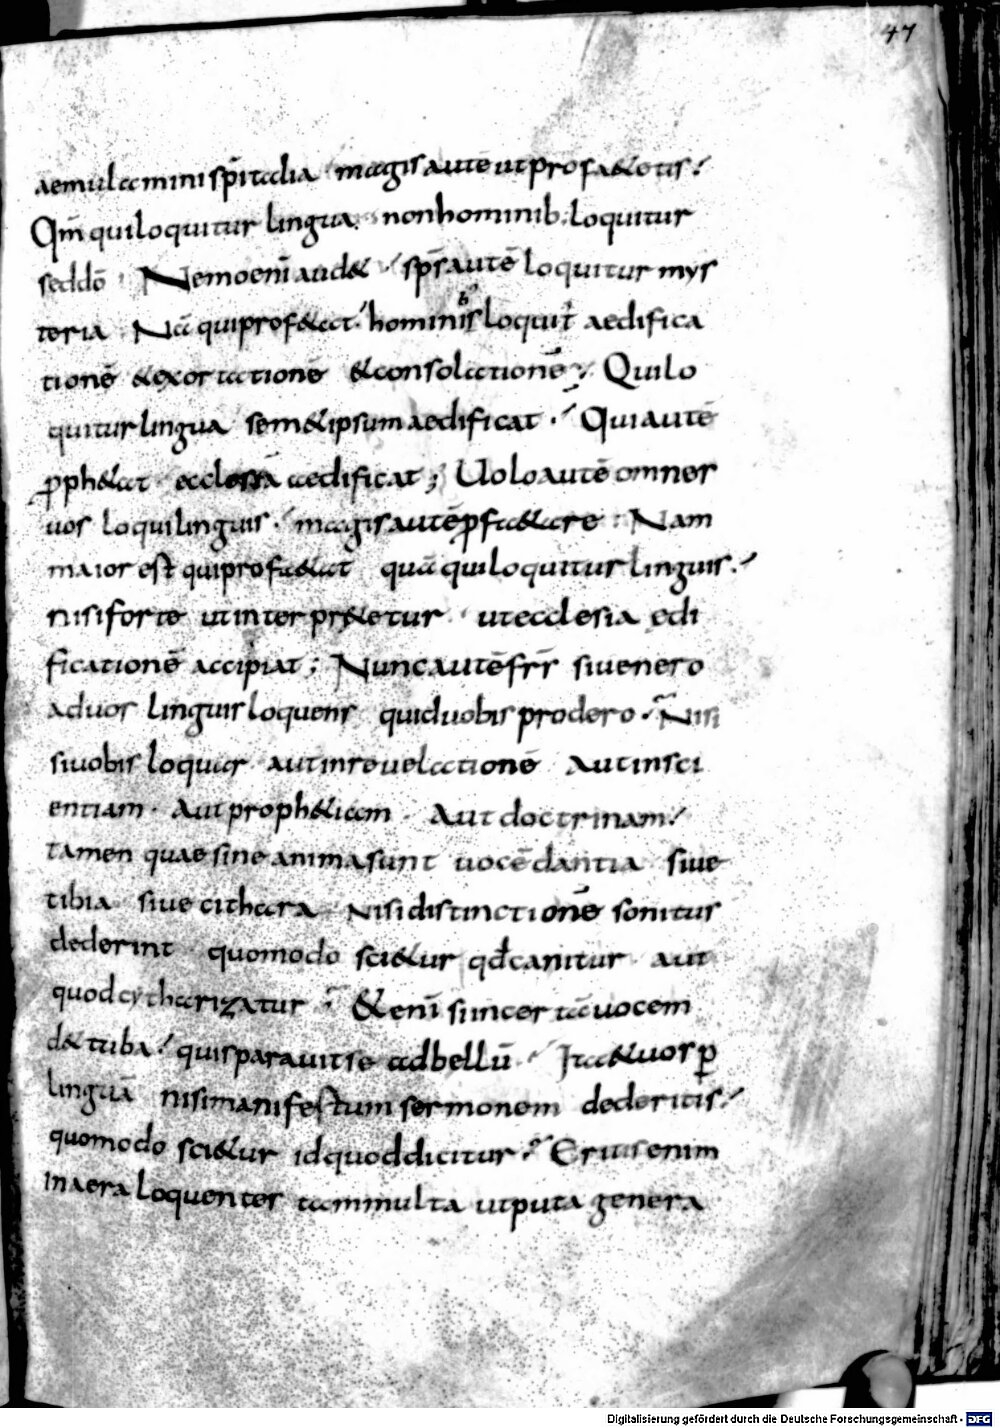 47
aemulamini spītalia magis autē ut profa&etis
Qm̄ qui loquitur lingua. non hominib; loquitur
sed dō Nemo enī aud& sps̄ autē loquitur mys
teria Nā qui prof&at hominib; loquit̄ aedifica
tionē & exortationē & consolationē; Qui lo
quitur lingua sem&ipsum aedificat. Qui autē
pph&at ecclesiā aedificat; Uolo autē omnes
uos loqui linguis. magis autē pfa&are. Nam
maior est qui profa&at quā qui loquitur linguis.
nisi forte ut interpr&etur ut ecclesia edi
ficationē accipiat; Nunc autē frr̄ si uenero
ad uos linguis loquens quid uobis prodero. Nisi
si uobis loquar aut in reuelationē Aut in sci
entiam. Aut proph&iam. Aut doctrinam.
tamen quae sine anima sunt uocē dantia siue
tibia siue cithara Nisi distinctionē sonitus
dederint quomodo sci&ur qd̄ canitur aut
quod cytharizatur. &enī si incertā uocem
d& tuba. quis parauit se ad bellū. Ita & uos p
linguā nisi manifestum sermonem dederitis.
quomodo sci&ur id quod dicitur. Eritis enim
in aera loquentes tam multa ut puta genera
Digitalisierung gefördert durch die Deutsche Forschungsgemeinschaft - DFG